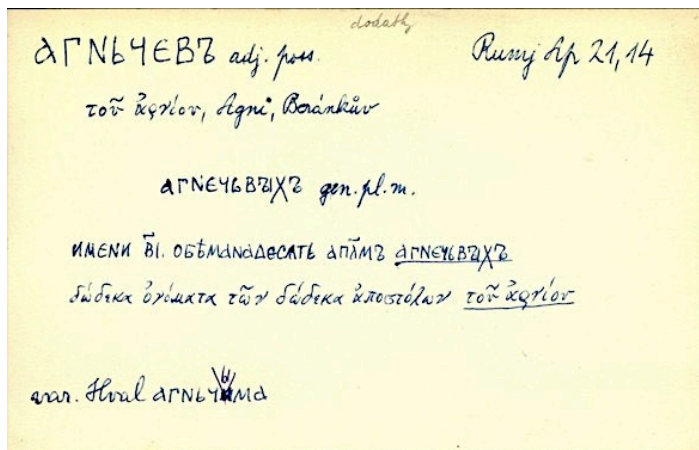 dodatky
агньчевъ adj. poss. Rumj Ap 21,14
τοῦ ἀρνίου, Agni, Beránkův
агнечьвъıхъ gen. pl. m.
имени в҃і. обѣманадесѧть ап҃лмъ агнечьвъıхъ
δώδεκα ὀνόματα τῶν δώδεκα ἀποστόλων τοῦ ἀρνίου
var. Hval